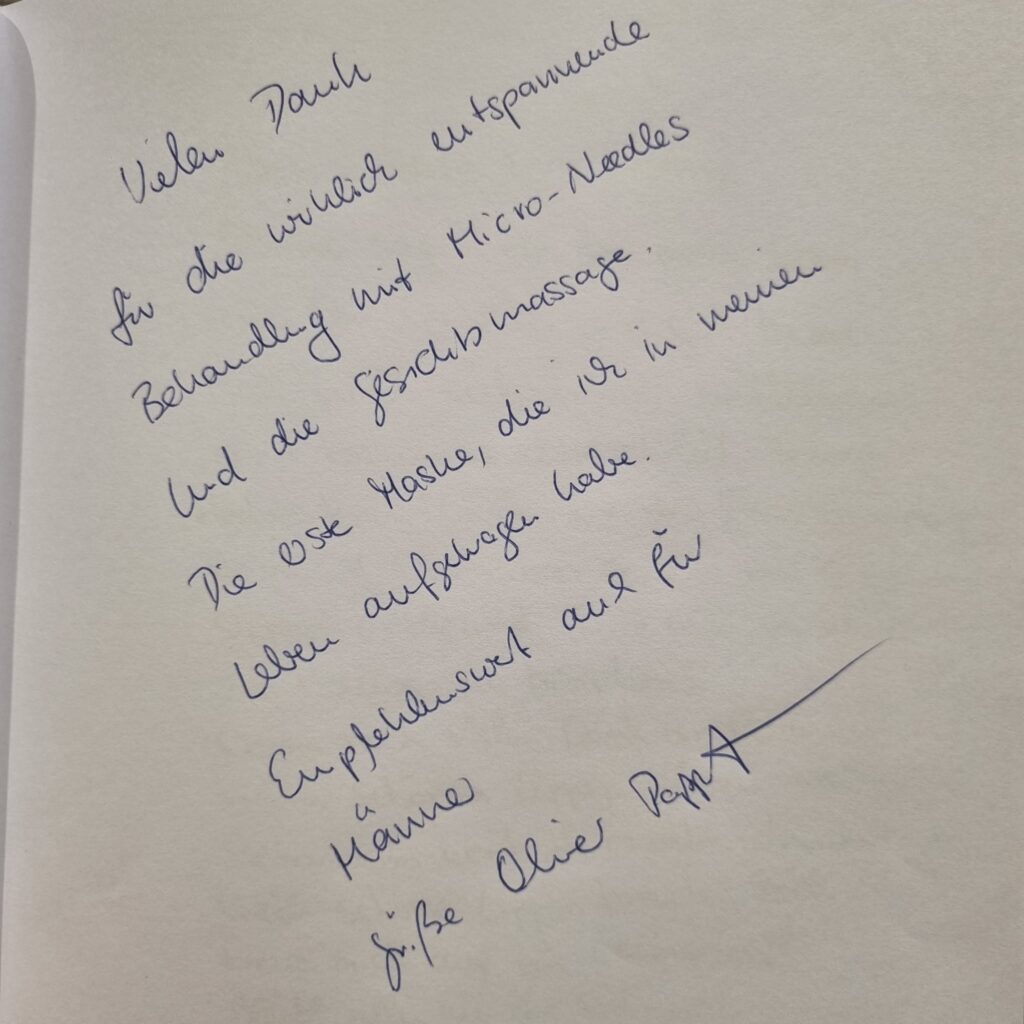 Vielen Dank
für die wirklich entspannende
Behandlung mit Micro-Needles
und die Gesichtsmassage.
Die erste Maske, die ich in meinem
Leben aufgetragen habe.
Empfehlenswert auch für
Männer
Grüße Oliver